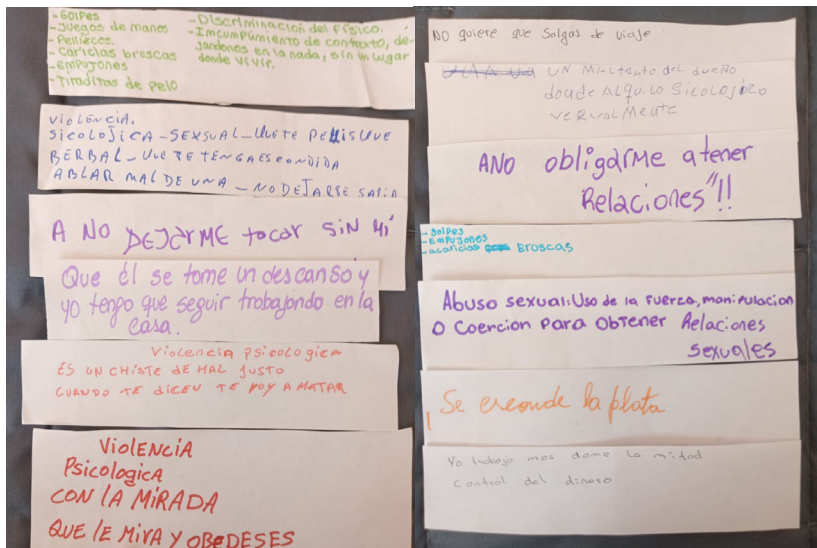 - GOlPes
- Juegos de manos
- Pellizcos.
- Caricias broscas
- empujones
- Tiraditas de pelo
- Discriminacion del Físico.
- Imcumplimiento de contrato, de-
jandonos en la nada, sin un lugar
donde vivir.
VIOLENCIA.
SICOLOJICA - SEXSUAL - QUE TE PELLISQUE
BERBAL - QUE TE TENGA ESCONDIDA
ABLAR MAL DE UNA - NO DEJARTE SALIR
A NO DEJArME tocar SIN MI
Que él se tome un descanso y
yo tengo que seguir trabajondo en la
casa.
Violencia Psicologica
ES UN CHISTE DE MAL JUSTO
CUANDO TE DICEN TE VOY A MATAR
VIOLENCIA
Psicologica
CON lA MIRADA
QUE lE MIVA Y OBEDESES
NO quiere que salgas de viaje
UN MALTRATO del dueño
donde ALQUILO SICOLOJICO
VERVALMENTE
ANO obligarme a tener
Relaciones"!!
- golpes
- EMPUJONES
- acaricias BROSCAS
Abuso sexual: Uso de la Fuerza, manipulacion
O Coercion para Obtener Relaciones
sexuales
Se esconde la plata
Yo trabajo mas dame la mitad
Control del dinero